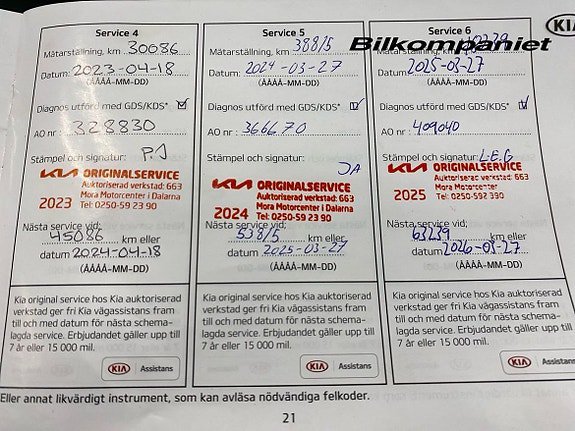 Service 4
Mätarställning, km 30086
Datum: 2023-04-18
(ÅÅÅÅ-MM-DD)
Diagnos utförd med GDS/KDS*
AO nr: 328830
Stämpel och signatur: P.J
KIA ORIGINALSERVICE
Auktoriserad verkstad: 663
2023 Mora Motorcenter i Dalarna
Tel: 0250-59 23 90
Nästa service vid:
45086 km eller
datum 2024-04-18
(ÅÅÅÅ-MM-DD)
Kia original service hos Kia auktoriserad
verkstad ger fri Kia vägassistans fram
till och med datum för nästa schema-
lagda service. Erbjudandet gäller upp till
7 år eller 15 000 mil.
KIA Assistans
Service 5
Mätarställning, km 38815
Datum: 2024-03-27
(ÅÅÅÅ-MM-DD)
Diagnos utförd med GDS/KDS*
AO nr: 366670
Stämpel och signatur:
JA
KIA ORIGINALSERVICE
Auktoriserad verkstad: 663
2024 Mora Motorcenter i Dalarna
Tel: 0250-59 23 90
Nästa service vid:
53815 km eller
datum 2025-03-27
(ÅÅÅÅ-MM-DD)
Kia original service hos Kia auktoriserad
verkstad ger fri Kia vägassistans fram
till och med datum för nästa schema-
lagda service. Erbjudandet gäller upp till
7 år eller 15 000 mil.
KIA Assistans
Service 6
Bilkompaniet
Datum: 2025-03-27
(ÅÅÅÅ-MM-DD)
Diagnos utförd med GDS/KDS*
AO nr: 409040
Stämpel och signatur: L.E.G
KIA ORIGINALSERVICE
Auktoriserad verkstad: 663
2025 Mora Motorcenter
Tel: 0250-59 23 90
Nästa service vid:
63239 km eller
datum 2026-03-27
(ÅÅÅÅ-MM-DD)
Kia original service hos Kia auktoriserad
verkstad ger fri Kia vägassistans fram
till och med datum för nästa schema-
lagda service. Erbjudandet gäller upp till
7 år eller 15 000 mil.
KIA Assistans
KIA
Eller annat likvärdigt instrument, som kan avläsa nödvändiga felkoder.
21